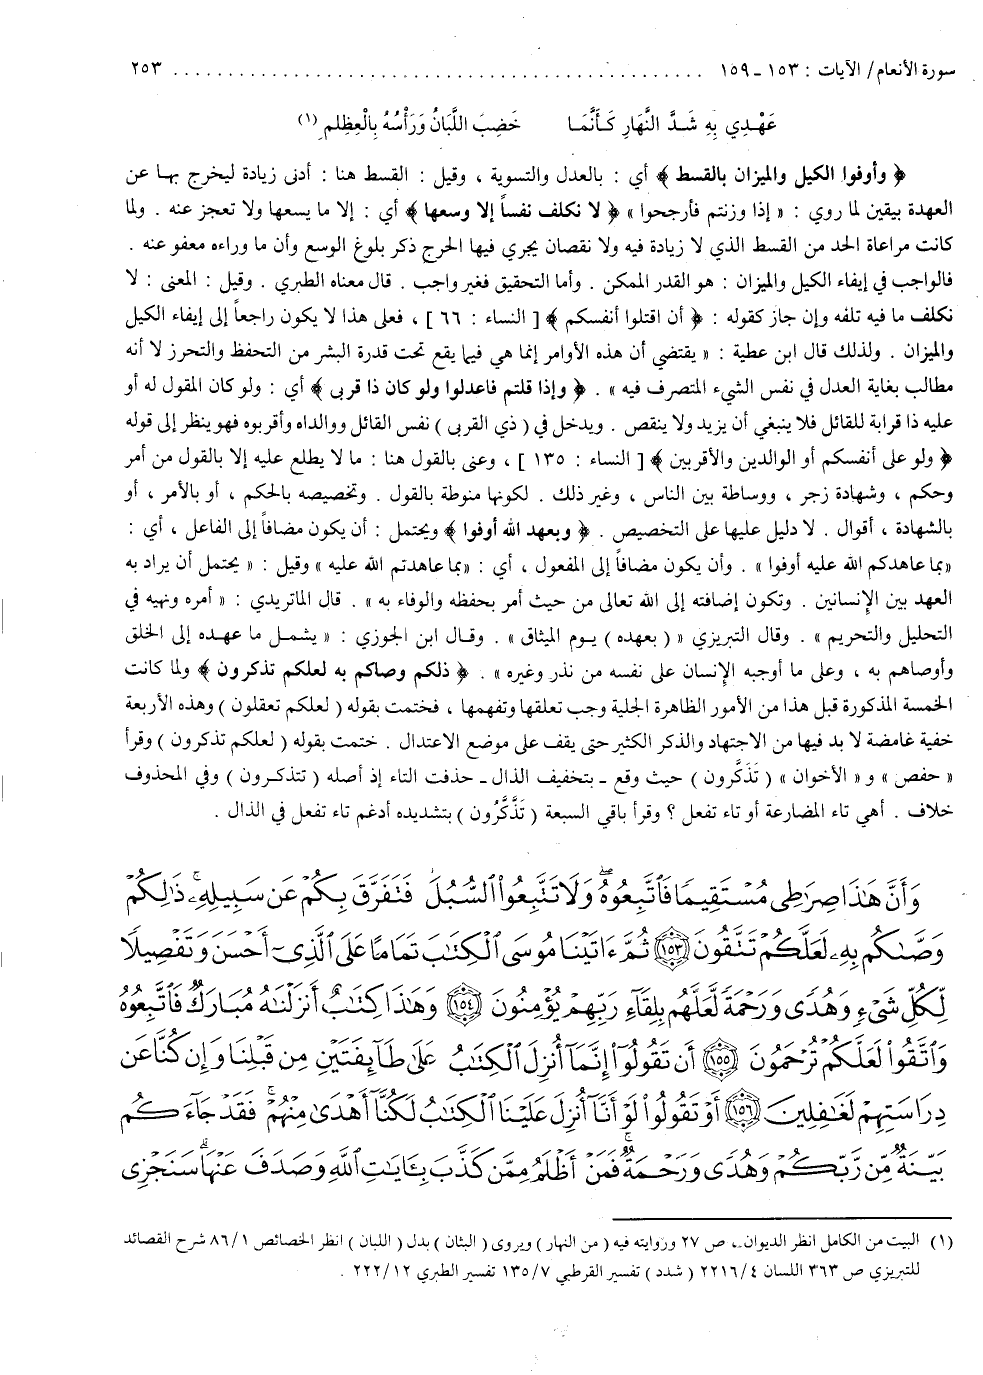 سورة الأنعام/ الآيات : ١٥٣ ـ ١٥٩ ................................................ ٢٥٣
عَهْـدِي بِهِ شَـدَّ النَّهَارِ كَـأَنَّمَـا خَضِبَ اللَّبَانُ وَرَأْسُهُ بِالْعِظلمِ (١)
﴿ وأوفوا الكيل والميزان بالقسط ﴾ أي : بالعدل والتسوية ، وقيل : القسط هنا : أدنى زيادة ليخرج بهـا عن
العهدة بيقين لما روي : « إذا وزنتم فأرجحوا » ﴿ لا نكلف نفساً إلا وسعها ﴾ أي : إلا ما يسعها ولا تعجز عنه . ولما
كانت مراعاة الحد من القسط الذي لا زيادة فيه ولا نقصان يجري فيها الحرج ذكر بلوغ الوسع وأن ما وراءه معفو عنه .
فالواجب في إيفاء الكيل والميزان : هو القدر الممكن . وأما التحقيق فغير واجب . قال معناه الطبري . وقيل : المعنى : لا
نكلف ما فيه تلفه وإن جاز كقوله : ﴿ أن اقتلوا أنفسكم ﴾ [ النساء : ٦٦ ] ، فعلى هذا لا يكون راجعاً إلى إيفاء الكيل
والميزان . ولذلك قال ابن عطية : « يقتضي أن هذه الأوامر إنما هي فيما يقع تحت قدرة البشر من التحفظ والتحرز لا أنه
مطالب بغاية العدل في نفس الشيء المتصرف فيه » . ﴿ وإذا قلتم فاعدلوا ولو كان ذا قربى ﴾ أي : ولو كان المقول له أو
عليه ذا قرابة للقائل فلا ينبغي أن يزيد ولا ينقص . ويدخل في ( ذي القربى ) نفس القائل ووالداه وأقربوه فهو ينظر إلى قوله
﴿ ولو على أنفسكم أو الوالدين والأقربين ﴾ [ النساء : ١٣٥ ] ، وعنى بالقول هنا : ما لا يطلع عليه إلا بالقول من أمر
وحكم ، وشهادة زجر ، ووساطة بين الناس ، وغير ذلك . لكونها منوطة بالقول . وتخصيصه بالحكم ، أو بالأمر ، أو
بالشهادة ، أقوال . لا دليل عليها على التخصيص . ﴿ وبعهد الله أوفوا ﴾ ويحتمل : أن يكون مضافاً إلى الفاعل ، أي :
«بما عاهدكم الله عليه أوفوا » . وأن يكون مضافاً إلى المفعول ، أي : «بما عاهدتم الله عليه » وقيل : « يحتمل أن يراد به
العهد بين الإنسانين . وتكون إضافته إلى الله تعالى من حيث أمر بحفظه والوفاء به » . قال الماتريدي : « أمره ونهيه في
التحليل والتحريم » . وقال التبريزي « ( بعهده ) يـوم الميثاق » . وقـال ابن الجوزي : « يشمـل ما عهـده إلى الخلق
وأوصاهم به ، وعلى ما أوجبه الإنسان على نفسه من نذر وغيره » . ﴿ ذلكم وصاكم به لعلكم تذكرون ﴾ ولما كانت
الخمسة المذكورة قبل هذا من الأمور الظاهرة الجلية وجب تعلقها وتفهمها ، فختمت بقوله ( لعلكم تعقلون ) وهذه الأربعة
خفية غامضة لا بد فيها من الاجتهاد والذكر الكثير حتى يقف على موضع الاعتدال . ختمت بقوله ( لعلكم تذكرون ) وقرأ
« حفص » و « الأخوان » ( تَذَكَّرون ) حيث وقع ـ بتخفيف الذال ـ حذفت التاء إذ أصله ( تتذكـرون ) وفي المحذوف
خلاف . أهي تاء المضارعة أو تاء تفعل ؟ وقرأ باقي السبعة ( تَذَّكَّرُون ) بتشديده أدغم تاء تفعل في الذال .
وَأَنَّ هَٰذَا صِرَٰطِى مُسْتَقِيمًا فَٱتَّبِعُوهُ ۖ وَلَا تَتَّبِعُوا۟ ٱلسُّبُلَ فَتَفَرَّقَ بِكُمْ عَن سَبِيلِهِۦ ۚ ذَٰلِكُمْ
وَصَّىٰكُم بِهِۦ لَعَلَّكُمْ تَتَّقُونَ ١٥٣ ثُمَّ ءَاتَيْنَا مُوسَى ٱلْكِتَٰبَ تَمَامًا عَلَى ٱلَّذِىٓ أَحْسَنَ وَتَفْصِيلًا
لِّكُلِّ شَىْءٍ وَهُدًى وَرَحْمَةً لَّعَلَّهُم بِلِقَآءِ رَبِّهِمْ يُؤْمِنُونَ ١٥٤ وَهَٰذَا كِتَٰبٌ أَنزَلْنَٰهُ مُبَارَكٌ فَٱتَّبِعُوهُ
وَٱتَّقُوا۟ لَعَلَّكُمْ تُرْحَمُونَ ١٥٥ أَن تَقُولُوٓا۟ إِنَّمَآ أُنزِلَ ٱلْكِتَٰبُ عَلَىٰ طَآئِفَتَيْنِ مِن قَبْلِنَا وَإِن كُنَّا عَن
دِرَاسَتِهِمْ لَغَٰفِلِينَ ١٥٦ أَوْ تَقُولُوا۟ لَوْ أَنَّآ أُنزِلَ عَلَيْنَا ٱلْكِتَٰبُ لَكُنَّآ أَهْدَىٰ مِنْهُمْ ۚ فَقَدْ جَآءَكُم
بَيِّنَةٌ مِّن رَّبِّكُمْ وَهُدًى وَرَحْمَةٌ ۚ فَمَنْ أَظْلَمُ مِمَّن كَذَّبَ بِـَٔايَٰتِ ٱللَّهِ وَصَدَفَ عَنْهَا ۗ سَنَجْزِى
(١) البيت من الكامل انظر الديوان ص ٢٧ وروايته فيه ( من النهار ) ويروى ( البنان ) بدل ( اللبان ) انظر الخصائص ٨٦/١ شرح القصائد
للتبريزي ص ٣٦٣ اللسان ٢٢١٦/٤ ( شدد ) تفسير القرطبي ١٣٥/٧ تفسير الطبري ٢٢٢/١٢ .